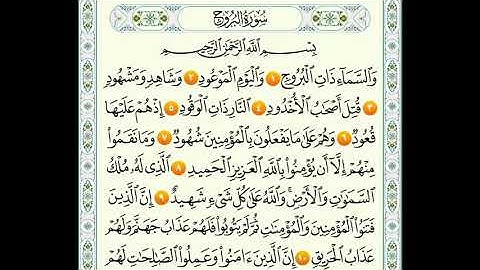 سُورَةُ البُرُوجِ
بِسْمِ ٱللَّهِ ٱلرَّحْمَٰنِ ٱلرَّحِيمِ
وَٱلسَّمَآءِ ذَاتِ ٱلْبُرُوجِ ١ وَٱلْيَوْمِ ٱلْمَوْعُودِ ٢ وَشَاهِدٍ وَمَشْهُودٍ
٣ قُتِلَ أَصْحَٰبُ ٱلْأُخْدُودِ ٤ ٱلنَّارِ ذَاتِ ٱلْوَقُودِ ٥ إِذْ هُمْ عَلَيْهَا
قُعُودٌ ٦ وَهُمْ عَلَىٰ مَا يَفْعَلُونَ بِٱلْمُؤْمِنِينَ شُهُودٌ ٧ وَمَا نَقَمُوا۟
مِنْهُمْ إِلَّآ أَن يُؤْمِنُوا۟ بِٱللَّهِ ٱلْعَزِيزِ ٱلْحَمِيدِ ٨ ٱلَّذِى لَهُۥ مُلْكُ
ٱلسَّمَٰوَٰتِ وَٱلْأَرْضِ ۚ وَٱللَّهُ عَلَىٰ كُلِّ شَىْءٍ شَهِيدٌ ٩ إِنَّ ٱلَّذِينَ
فَتَنُوا۟ ٱلْمُؤْمِنِينَ وَٱلْمُؤْمِنَٰتِ ثُمَّ لَمْ يَتُوبُوا۟ فَلَهُمْ عَذَابُ جَهَنَّمَ وَلَهُمْ
عَذَابُ ٱلْحَرِيقِ ١٠ إِنَّ ٱلَّذِينَ ءَامَنُوا۟ وَعَمِلُوا۟ ٱلصَّٰلِحَٰتِ لَهُمْ